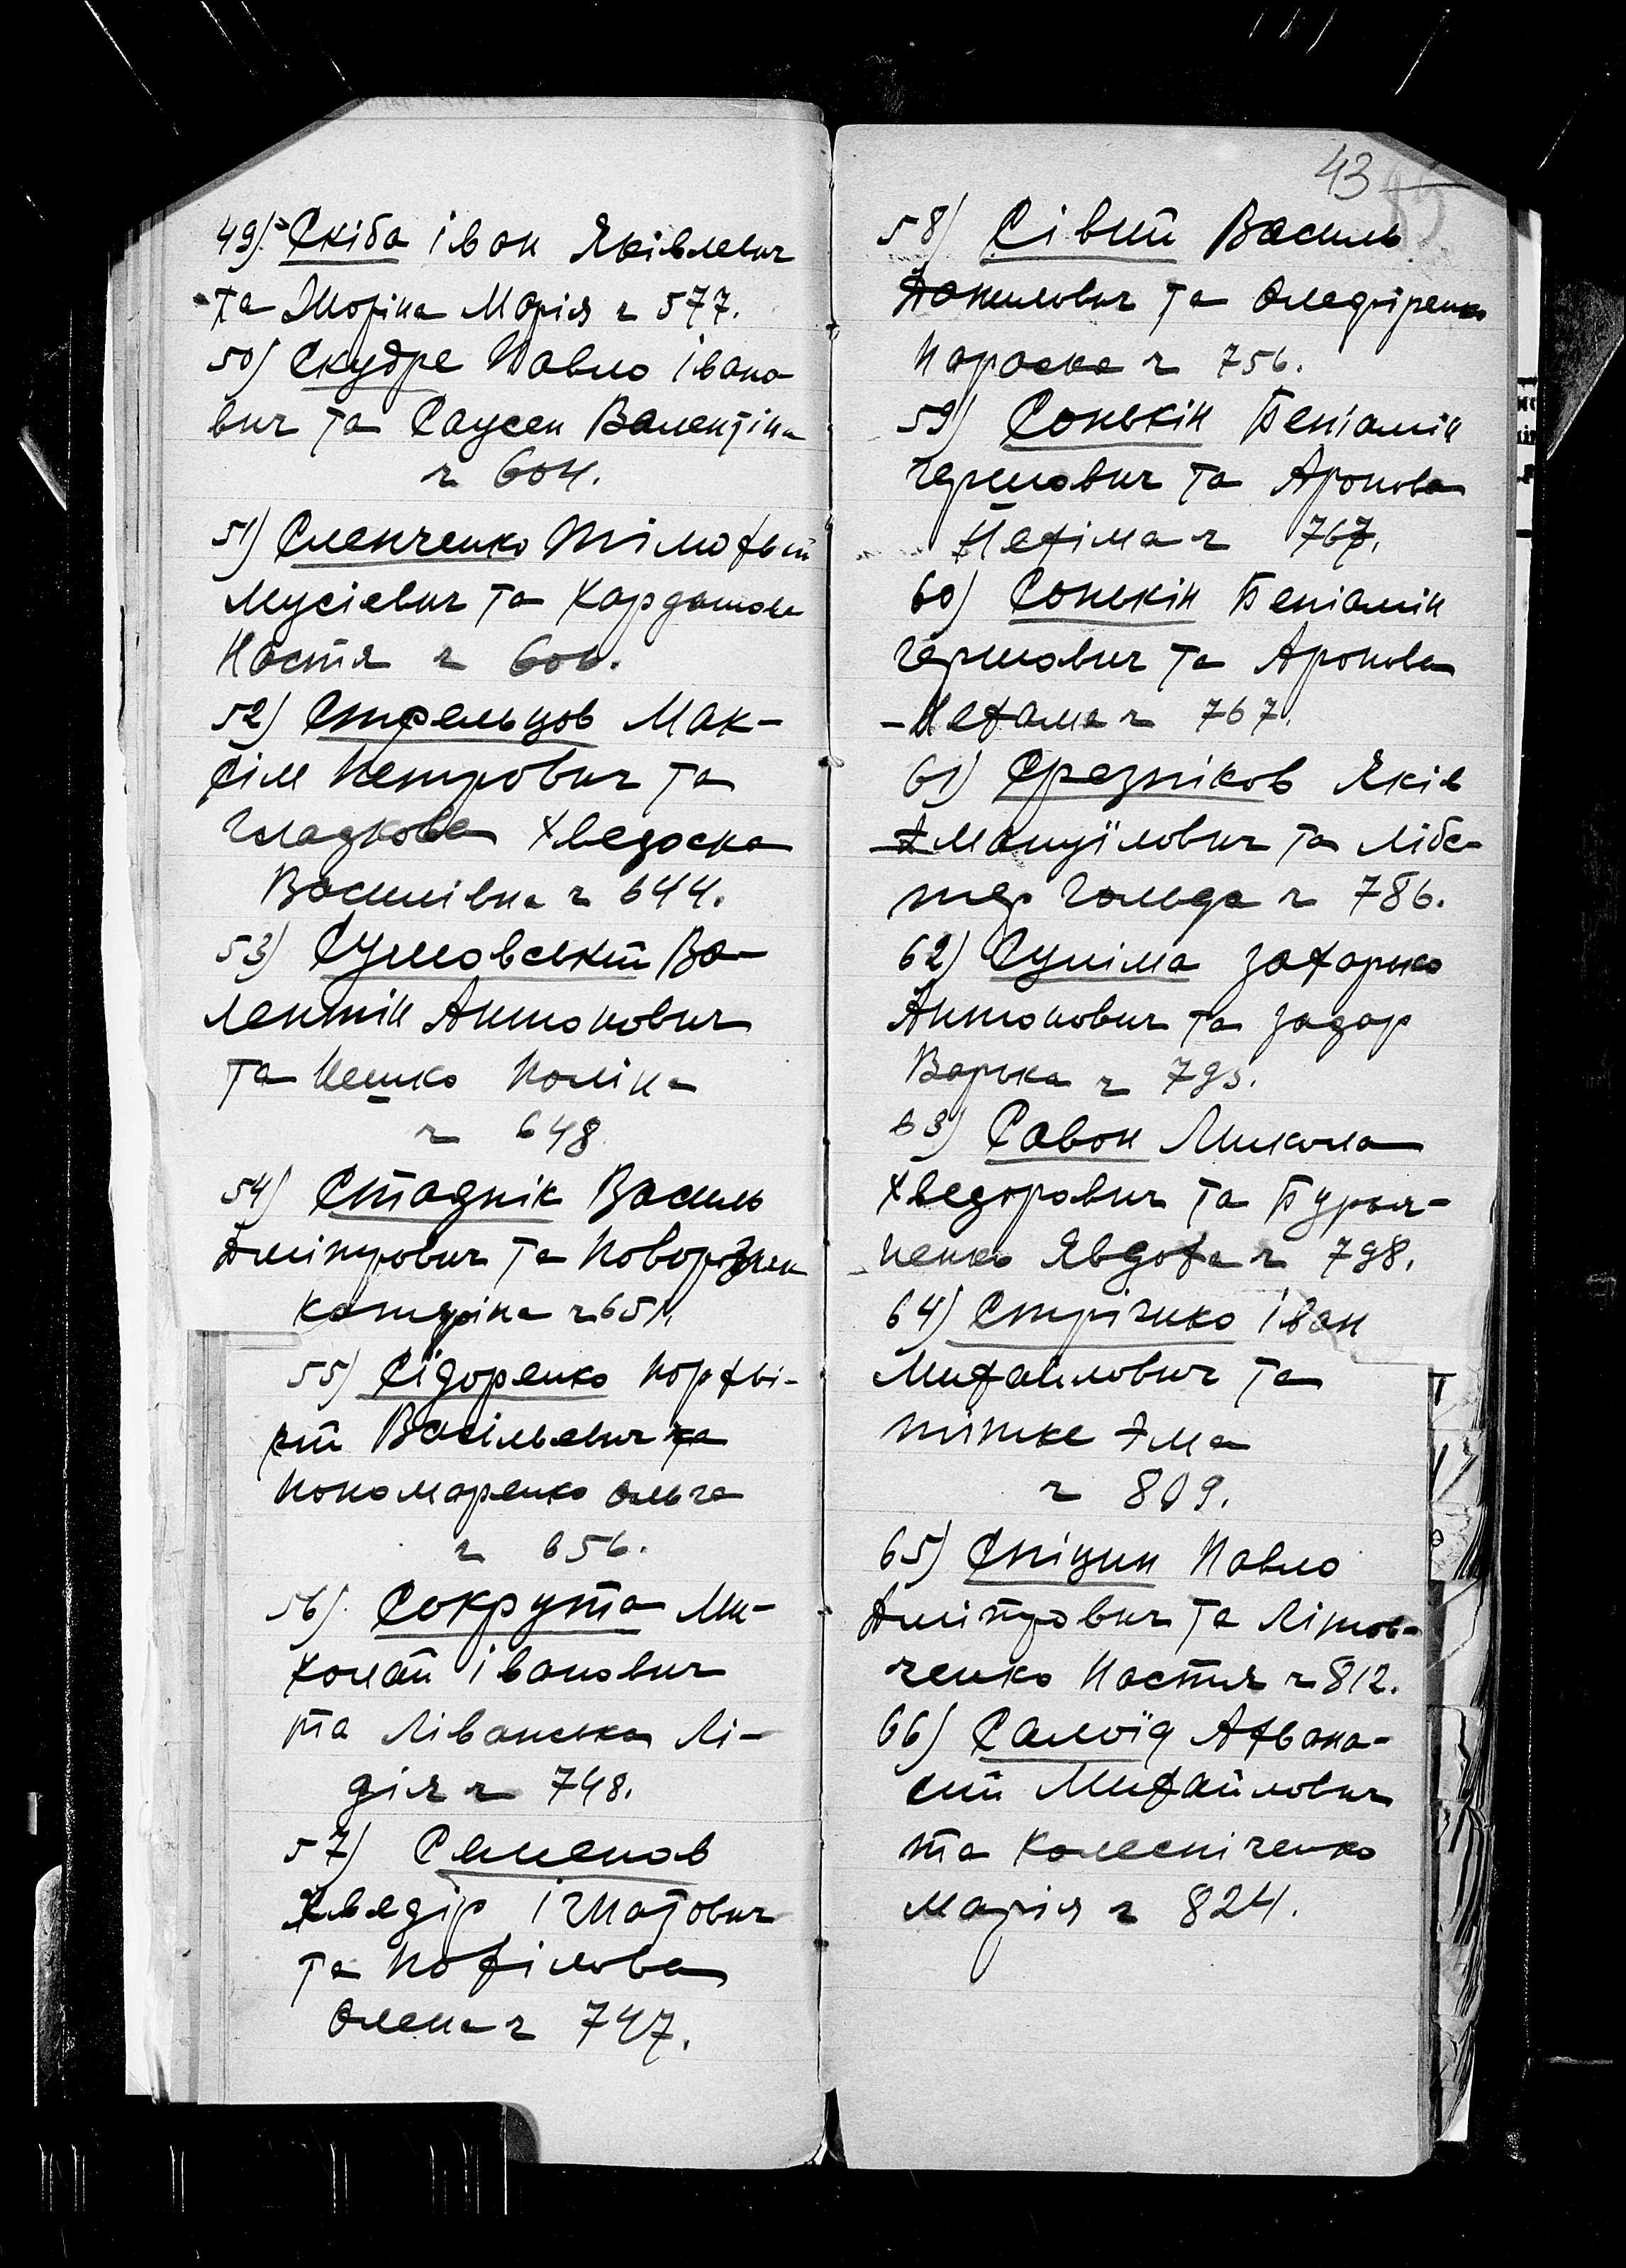 49) Скіба Іван Яківлевич
та Жоріна Марія ч 577.
50) Скудре Павло Івано
вич та Саусен Валентіна
ч 604.
51) Сленченко Тімофьій
Мусієвич та Кардашова
Настя ч 606.
52) Стрельцов Мак-
сім Петрович та
Гладкова Хведоска
Василівна ч 644.
53) Сумовський Ва-
лентін Антонович
та Пешко Поліна
ч 648
54) Стаднік Василь
Дмітрович та Поворознюк
Катеріна ч 651.
55) Сїдоренко Порфьі-
рій Васільевич та
Пономаренко Ольга
ч 656.
56) Сокрута Ми-
холай Іванович
та Ліванська Лі-
дія ч 748.
57) Семенов
Хведір Ігнатович
та Пофілова
Олена ч 747.
43
58) Сівий Василь
Данилович та Олефіренко
Параска ч 756.
59) Сонькін Беніамін
Гершович та Аронова
Нехіма ч 767.
60) Сонькін Беніамін
Гершович та Аронова
Нехама ч 767.
61) Срезніков Яків
Амануїлович та Лібе-
тер Гольда ч 786.
62) Суліма Захарко
Антонович та Задар
Варька ч 793.
63) Савон Микола
Хведорович та Бурья-
ненко Явдоха ч 798.
64) Стрічико Іван
Михайлович та
Тітке Ема
ч 809.
65) Спіцин Павло
Дмітрович та Літов-
ченко Настя ч 812.
66) Самоїд Афвана-
сій Михайлович
та Колесніченко
Марія ч 824.